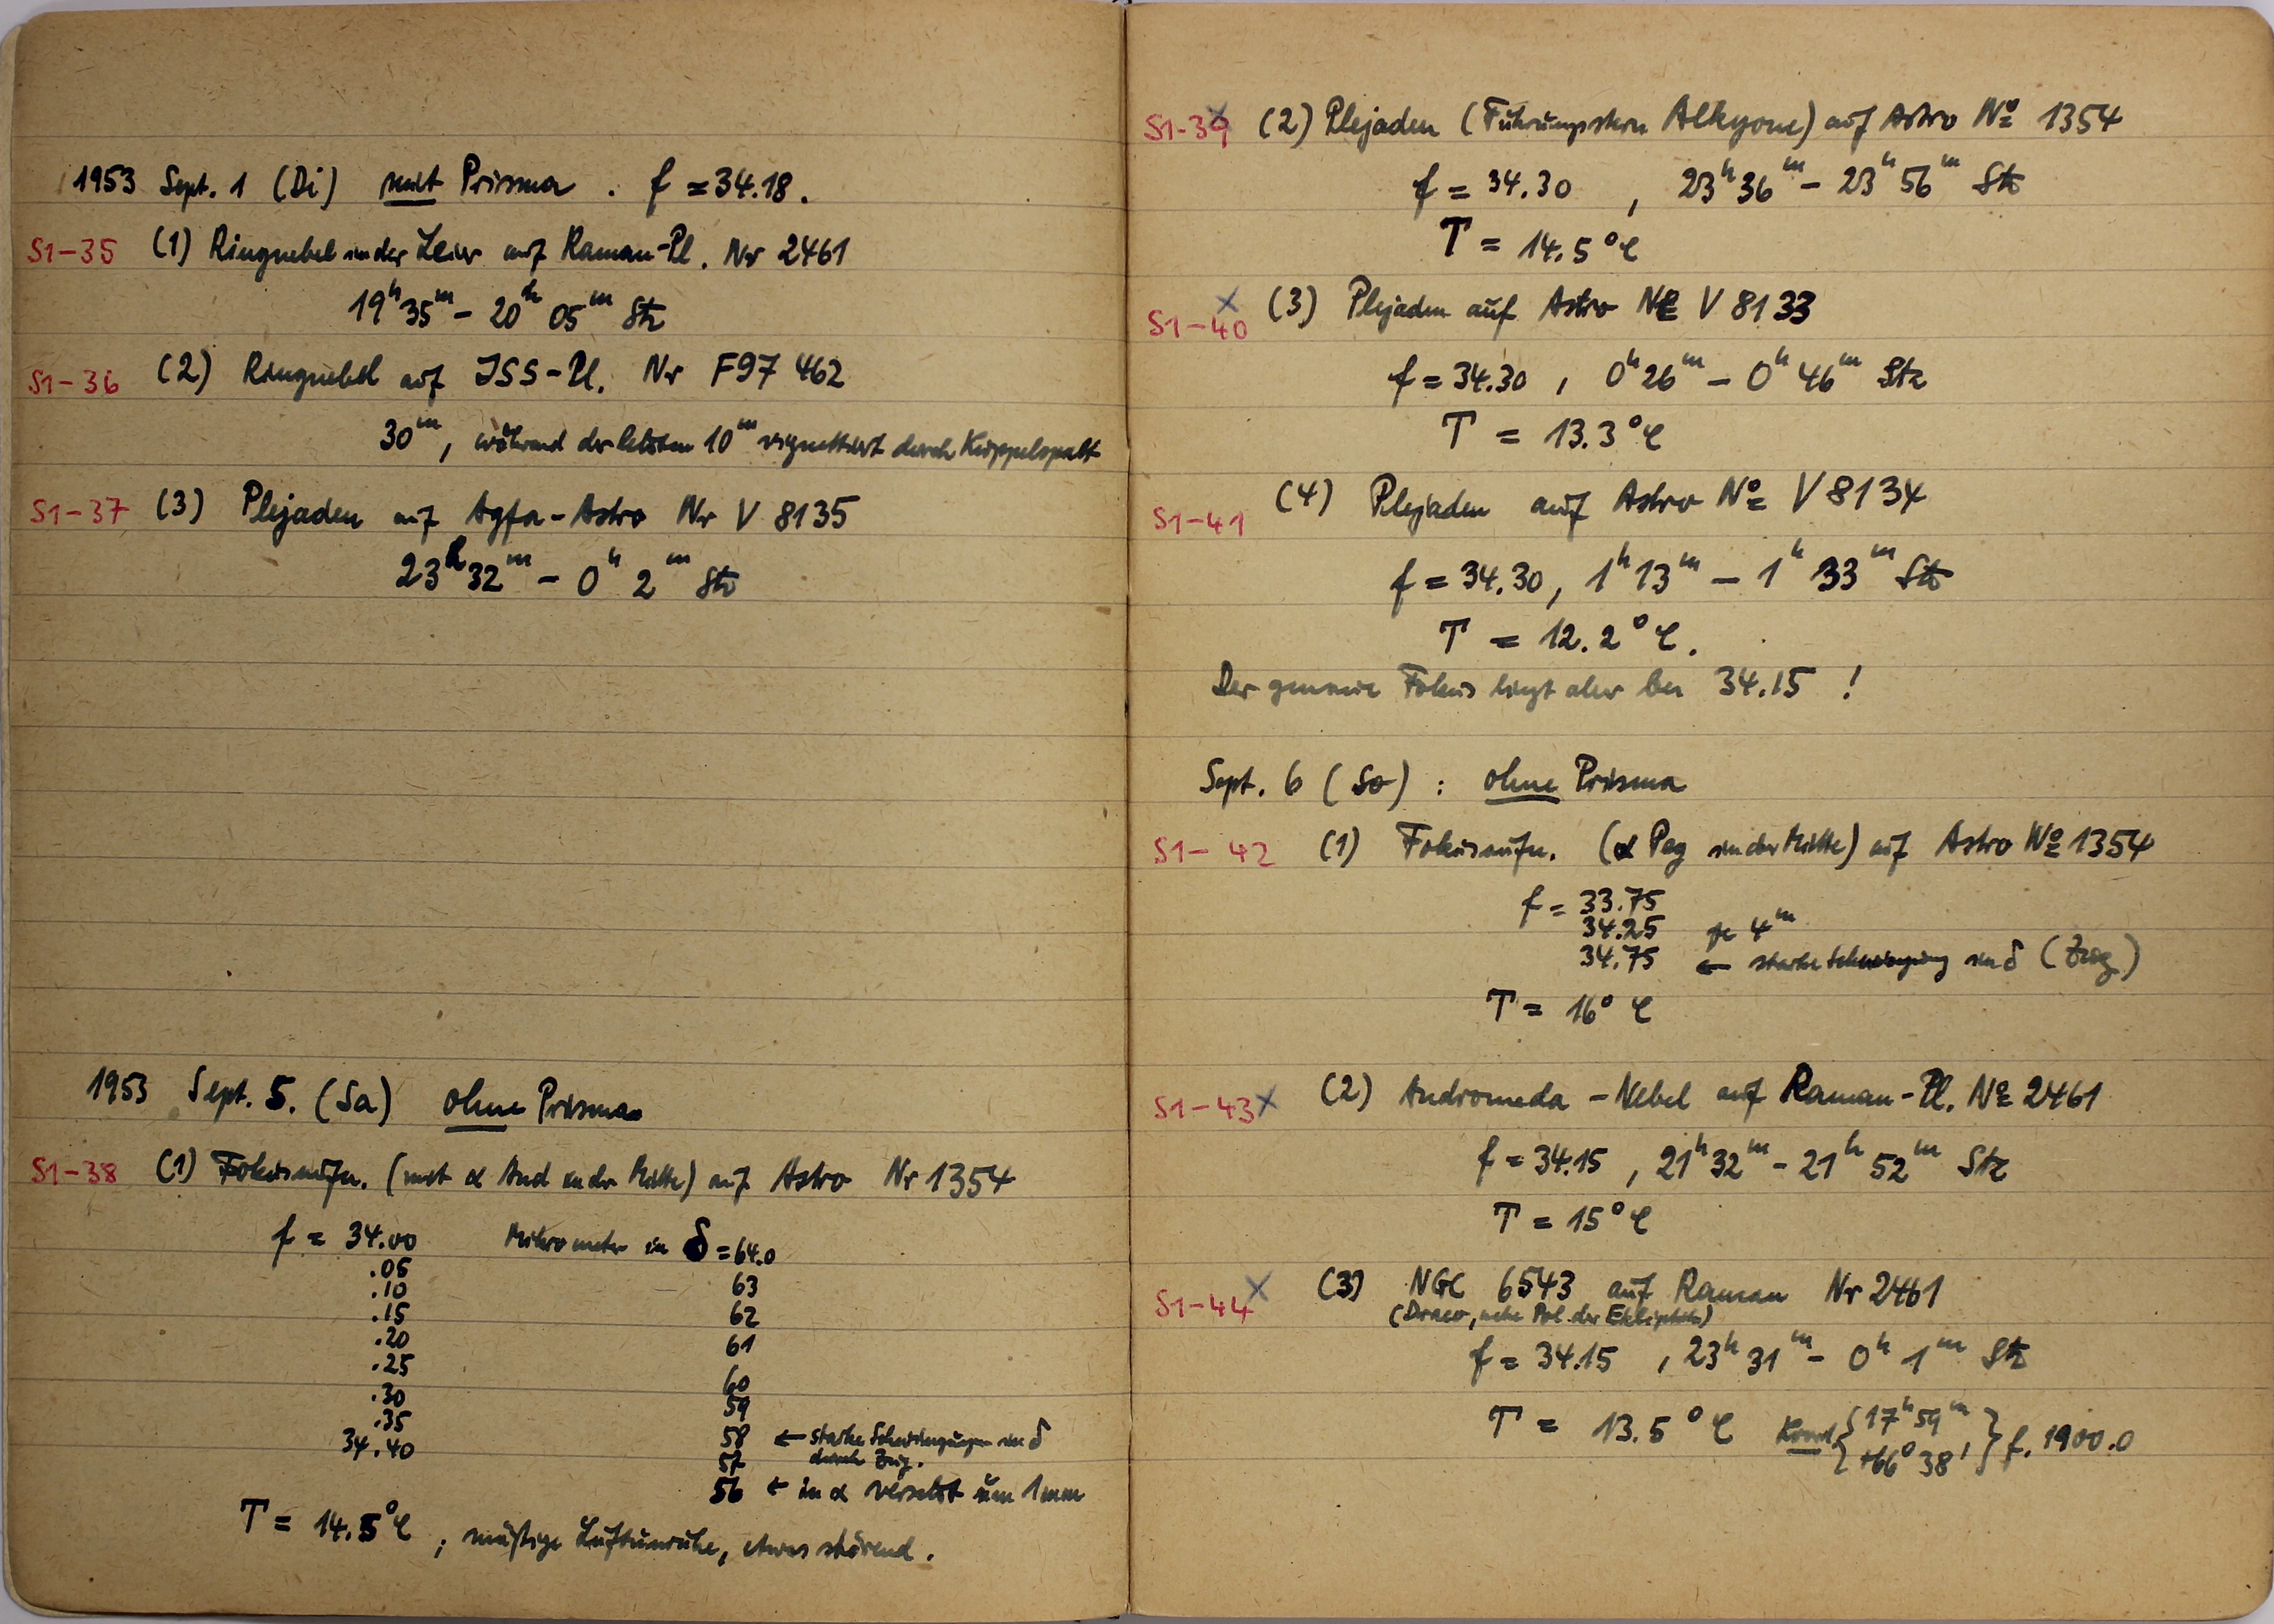 1953 Sept. 1 (Di) mit Prisma . f = 34.18.
S1-35 (1) Ringnebel in der Leier auf Raman-Pl. Nr 2461
19h 35m - 20h 05m Stz
S1-36 (2) Ringnebel auf ISS-Pl. Nr F97 462
30m, während der letzten 10m vignettiert durch Kuppelspalt
S1-37 (3) Plejaden auf Agfa-Astro Nr V 8135
23h 32m - 0h 2m Stz
1953 Sept. 5. (Sa) ohne Prisma
S1-38 (1) Fokusaufn. (mit α And in der Mitte) auf Astro Nr 1354
f = 34.00 Mikrometer in δ = 64.0
.05 63
.10 62
.15 61
.20 60
.25 59
.30 58 ← starke Schwingungen in δ
durch Zug.
.35 57
34.40 56 ← in α versetzt um 1mm
T = 14.5°C ; mäßige Luftunruhe, etwas störend.
S1-39 x (2) Plejaden (Führungsstern Alkyone) auf Astro No 1354
f = 34.30 , 23h 36m - 23h 56m Stz
T = 14.5°C
S1-40 x (3) Plejaden auf Astro No V 8133
f = 34.30 , 0h 26m - 0h 46m Stz
T = 13.3°C
S1-41 (4) Plejaden auf Astro No V 8134
f = 34.30, 1h 13m - 1h 33m Stz
T = 12.2°C.
Der genaue Fokus liegt aber bei 34.15 !
Sept. 6 (So) : ohne Prisma
S1-42 (1) Fokusaufn. (α Peg in der Mitte) auf Astro No 1354
f = 33.75
34.25 je 4m
34.75 ← starke Schwingung in δ (Zug)
T = 16°C
S1-43 x (2) Andromeda-Nebel auf Raman-Pl. No 2461
f = 34.15 , 21h 32m - 21h 52m Stz
T = 15°C
S1-44 x (3) NGC 6543 auf Raman Nr 2461
(Draco, nahe Pol der Ekliptik)
f = 34.15 , 23h 31m - 0h 1m Stz
T = 13.5°C Koord. {17h 59m
+66° 38'} f. 1900.0